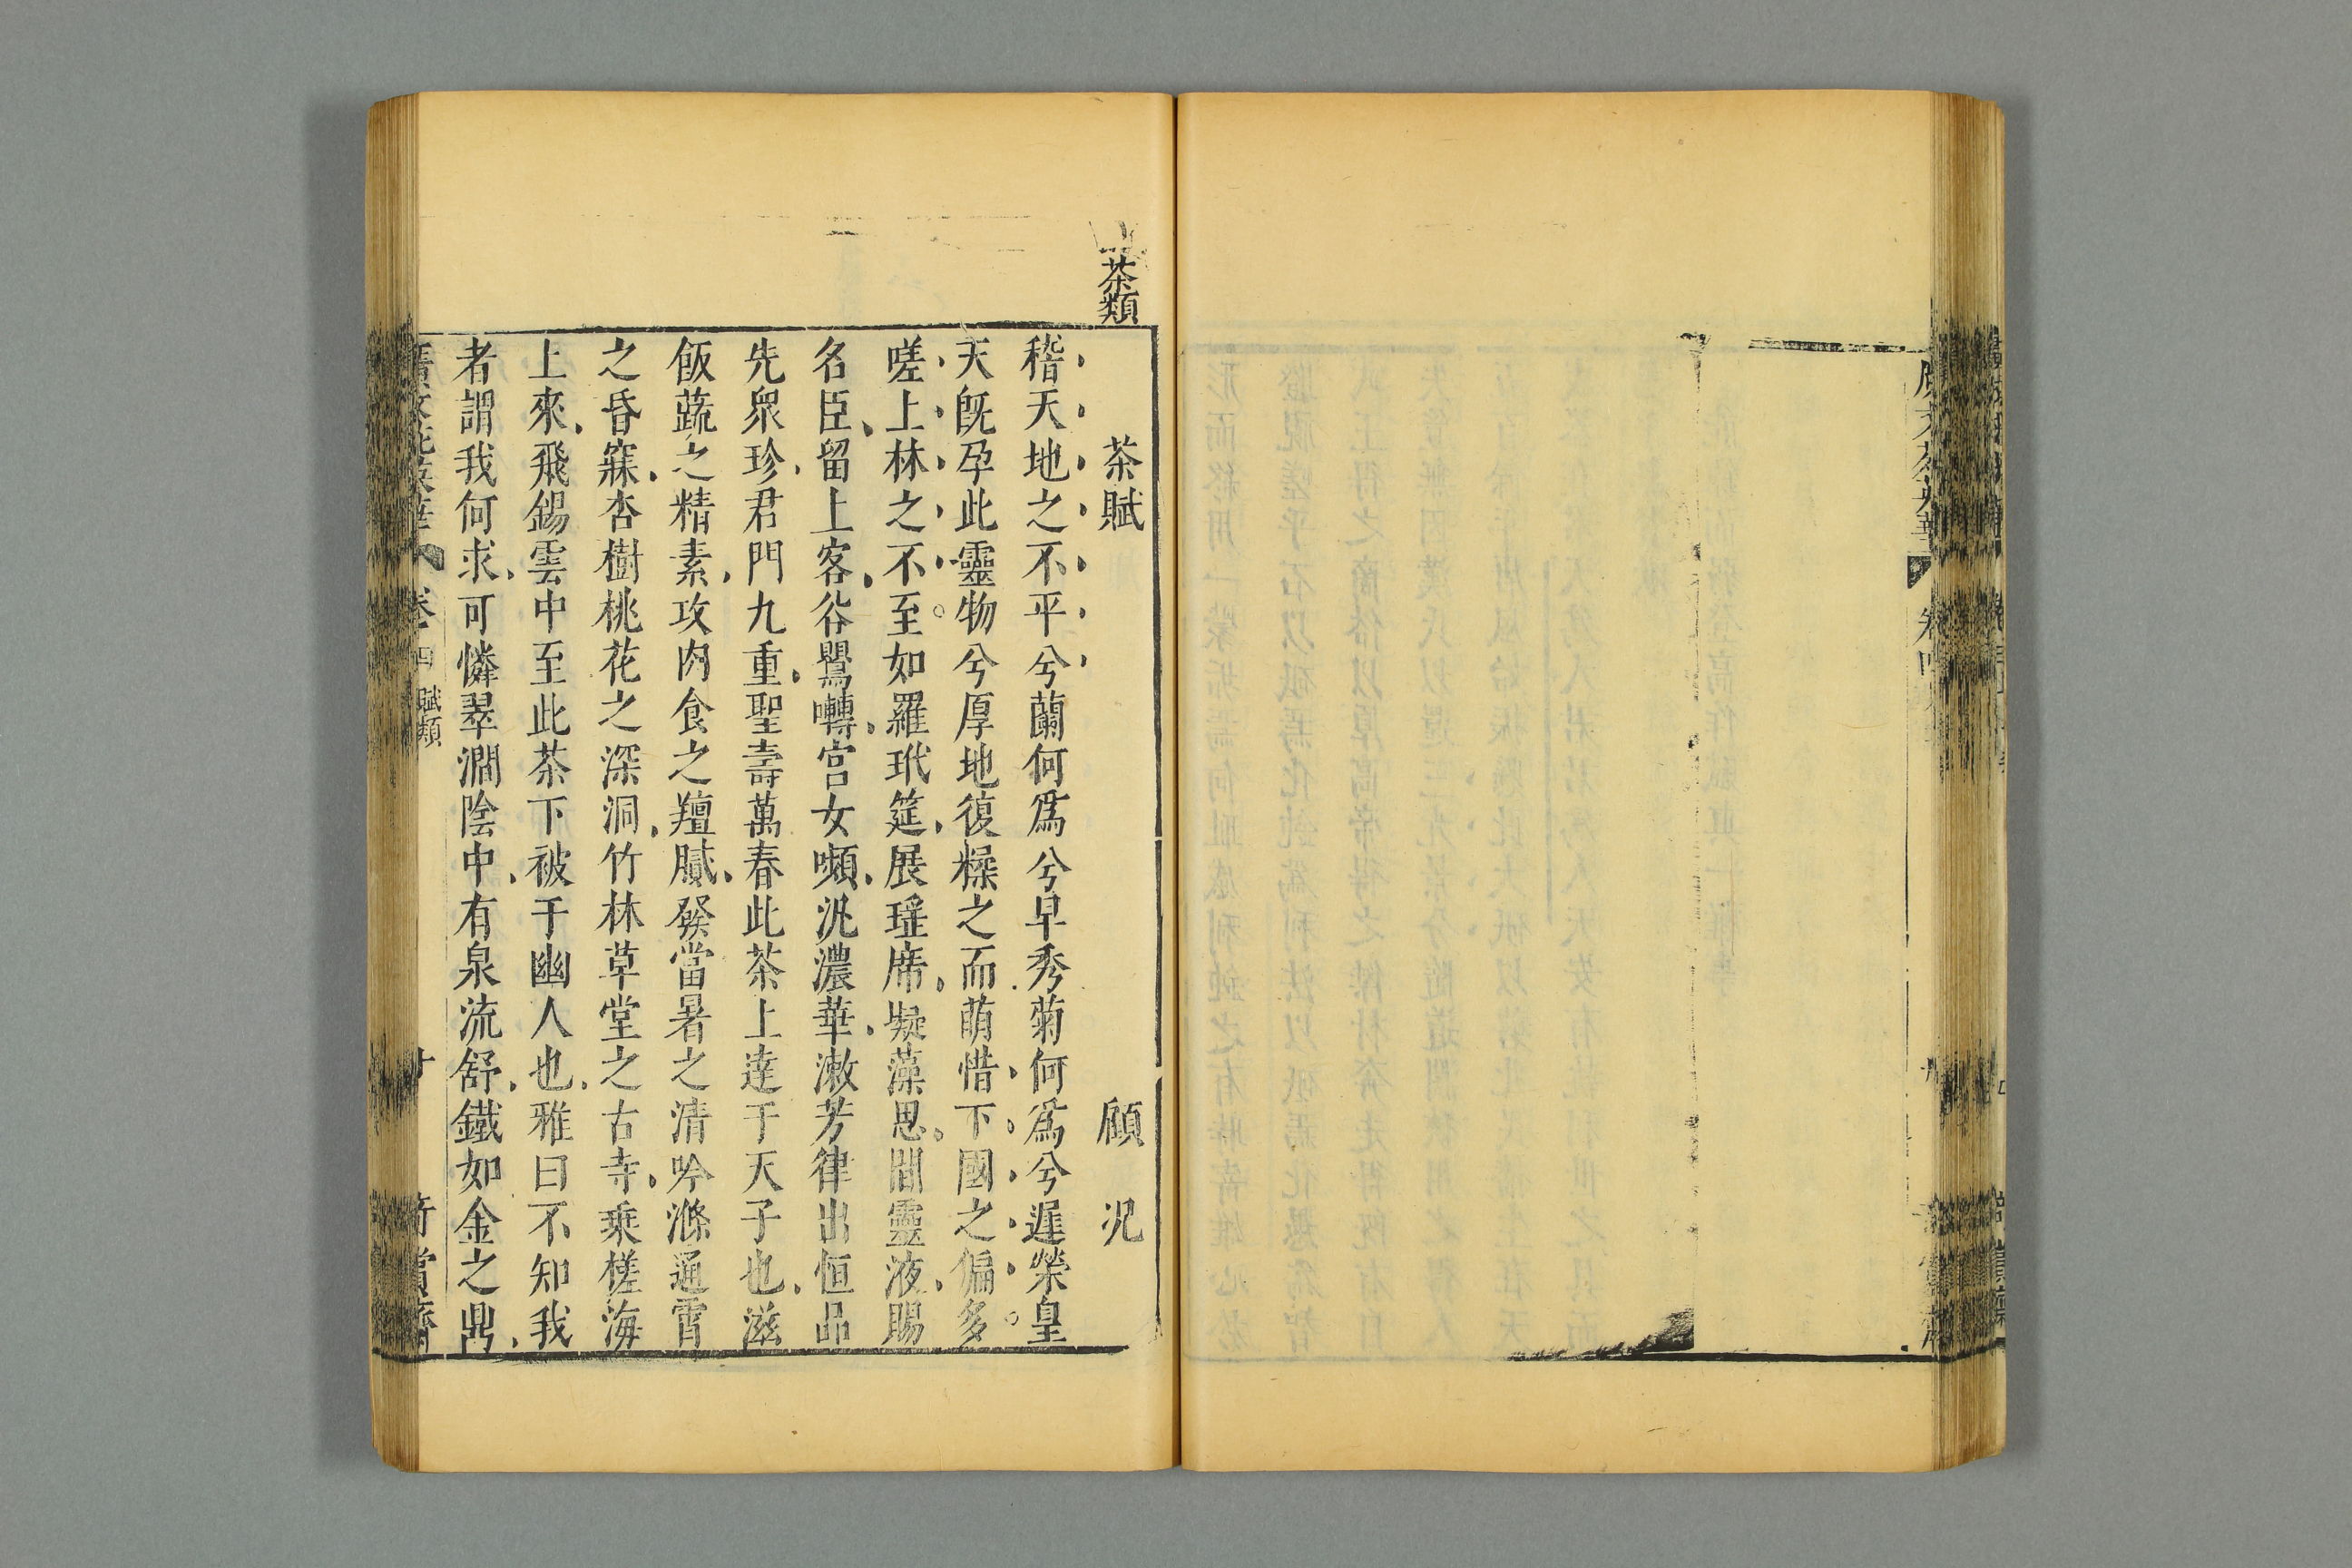 茶類
茶賦　顧況
稽天地之不平兮蘭何爲兮早秀菊何爲兮遲榮皇
天旣孕此靈物兮厚地復糅之而萌惜下國之偏多
嗟上林之不至如羅玳筵展瑤席凝藻思間靈液賜
名臣留上客谷鸎囀宮女嚬汎濃華漱芳律出恒品
先衆珍君門九重聖壽萬春此茶上達于天子也滋
飯蔬之精素攻肉食之羶膩發當暑之清吟滌通霄
之昏寐杏樹桃花之深洞竹林草堂之古寺乘槎海
上來飛錫雲中至此茶下被于幽人也雅曰不知我
者謂我何求可憐翠澗陰中有泉流舒鐵如金之鼎
卷四
賦類